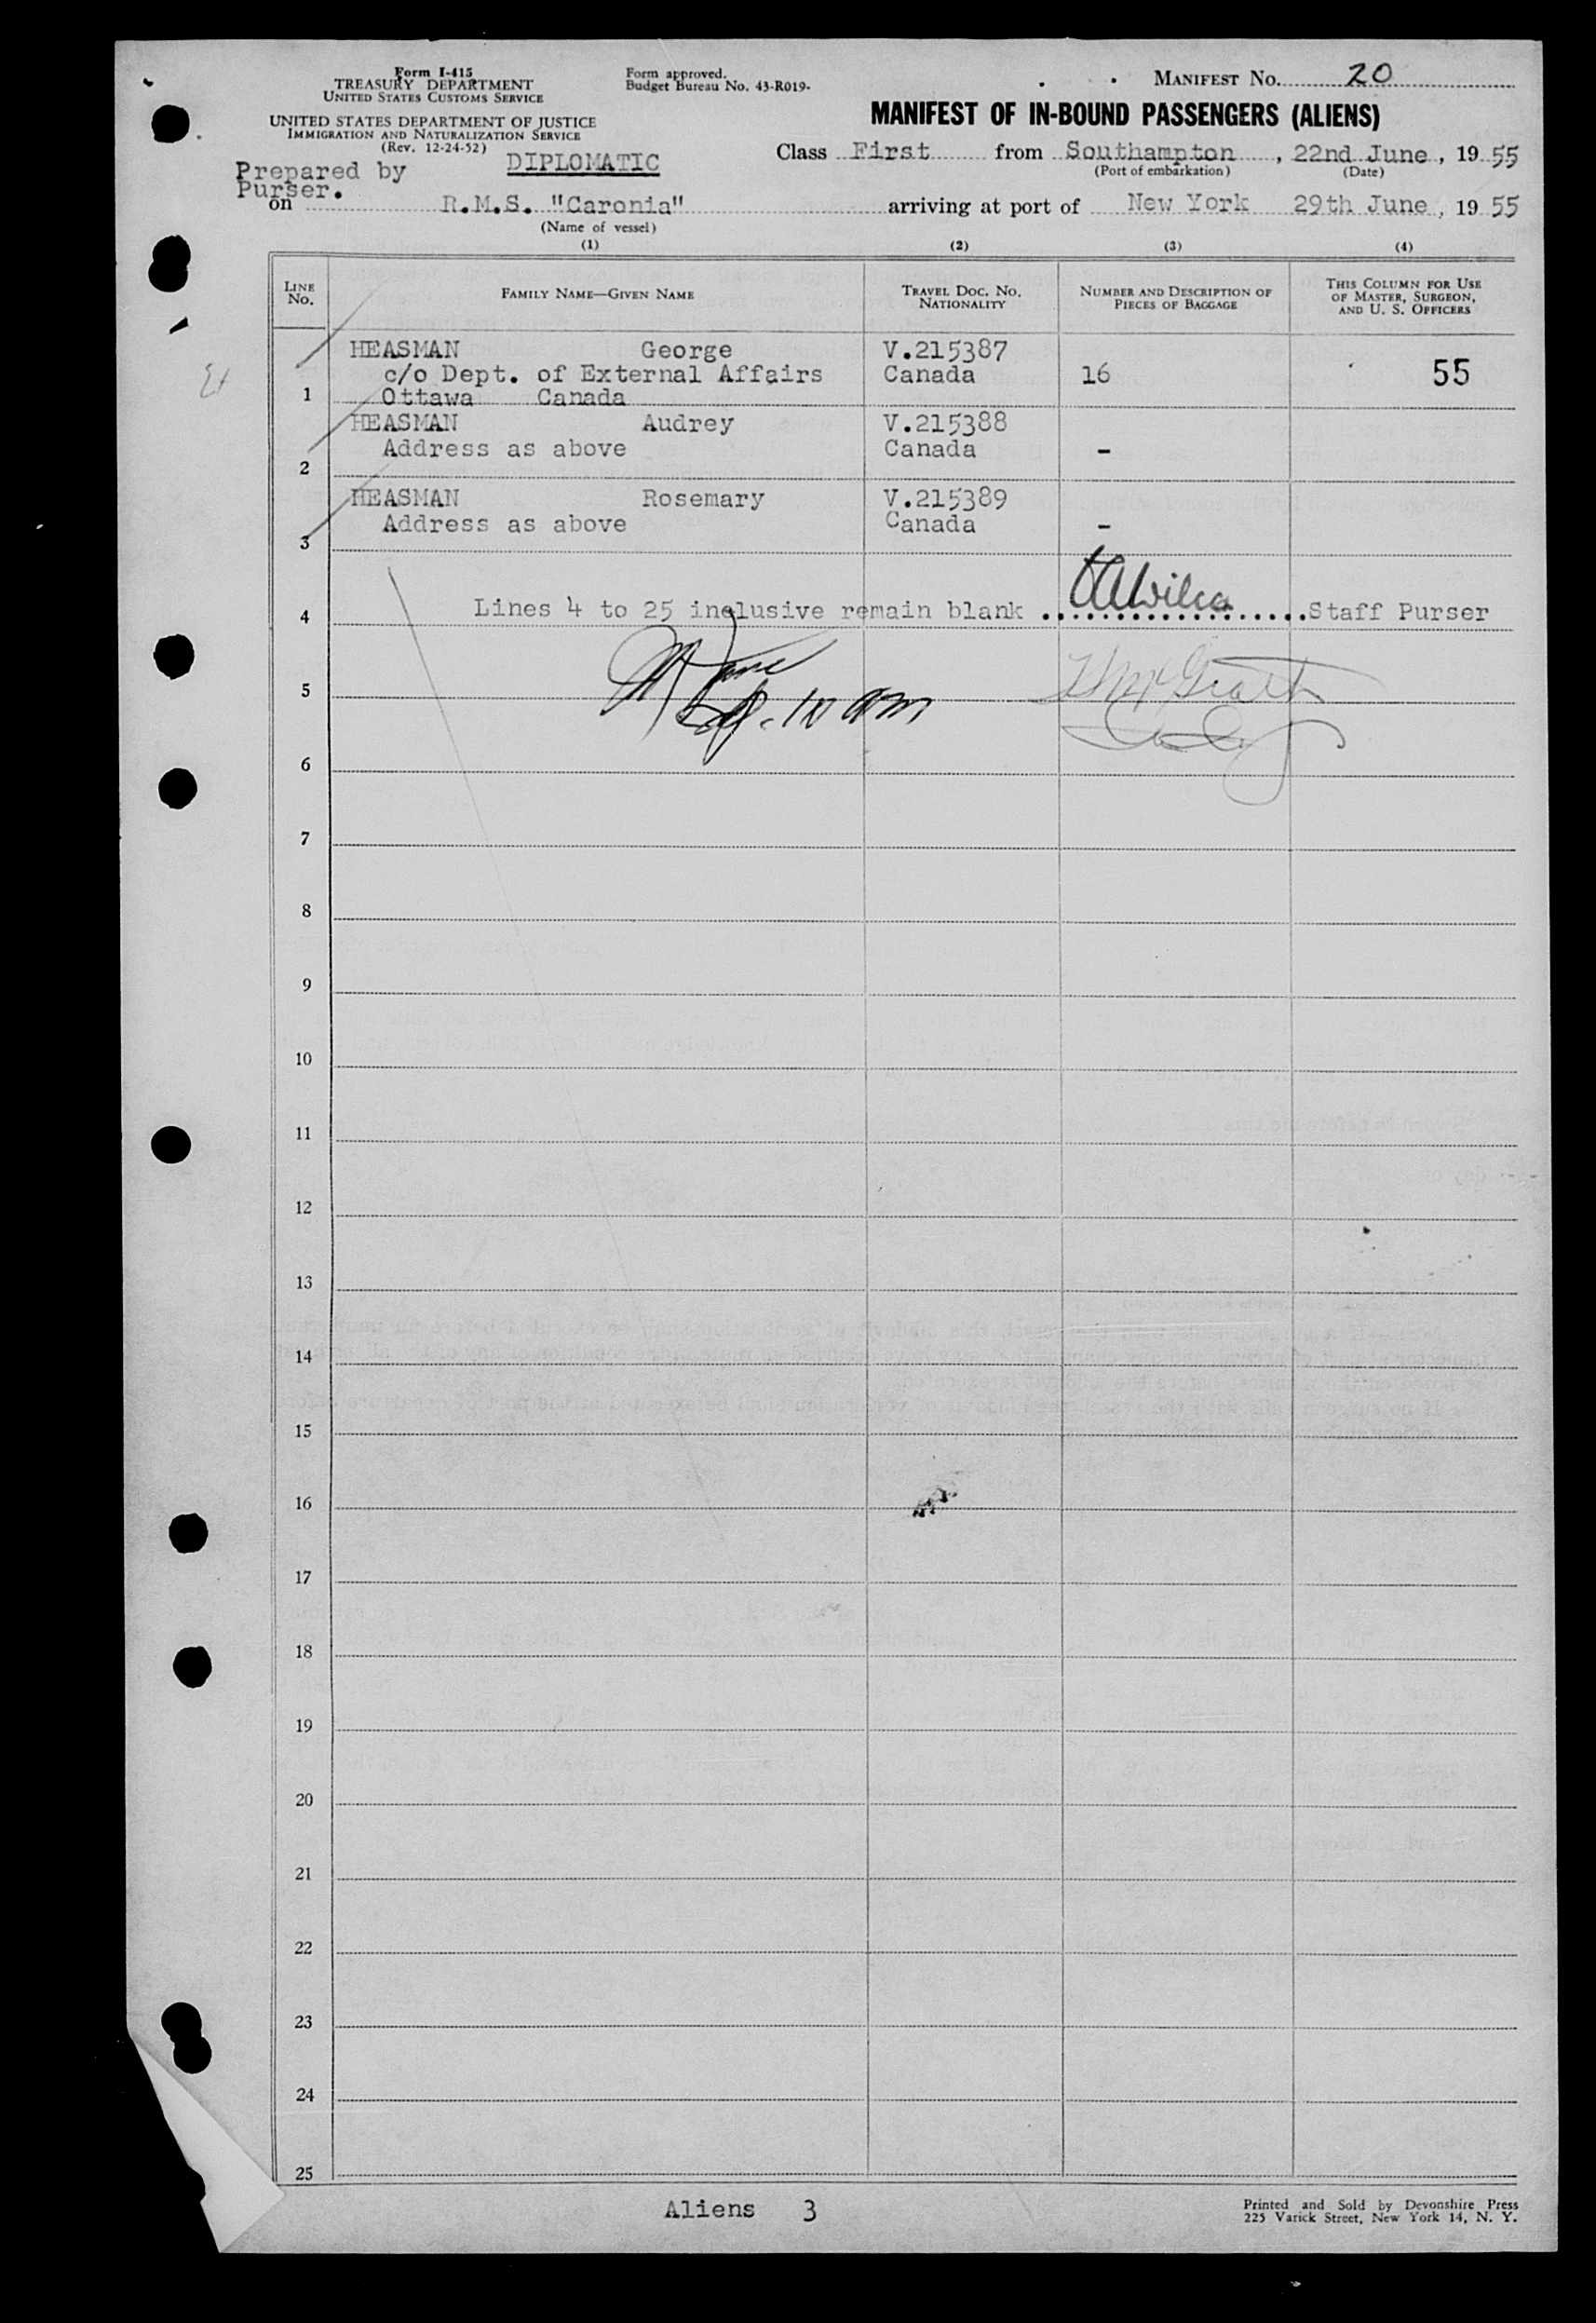 Form I-415
TREASURY DEPARTMENT
UNITED STATES CUSTOMS SERVICE
UNITED STATES DEPARTMENT OF JUSTICE
IMMIGRATION AND NATURALIZATION SERVICE
(Rev. 12-24-52)
Form approved.
Budget Bureau No. 43-R019-
MANIFEST No. 20
MANIFEST OF IN-BOUND PASSENGERS (ALIENS)
Prepared by Purser.
DIPLOMATIC
Class First from Southampton, 22nd June, 19 55
(Port of embarkation) (Date)
on R.M.S. "Caronia" arriving at port of New York 29th June, 19 55
(Name of vessel)
(1) (2) (3) (4)
LINE No. FAMILY NAME—GIVEN NAME TRAVEL DOC. NO. NATIONALITY NUMBER AND DESCRIPTION OF PIECES OF BAGGAGE THIS COLUMN FOR USE OF MASTER, SURGEON, AND U. S. OFFICERS
HEASMAN George V.215387
c/o Dept. of External Affairs Canada 16 55
1 Ottawa Canada
HEASMAN Audrey V.215388
Address as above Canada -
2
HEASMAN Rosemary V.215389
Address as above Canada -
3
4 Lines 4 to 25 inclusive remain blank Staff Purser
5 10 am McGrath
6
7
8
9
10
11
12
13
14
15
16
17
18
19
20
21
22
23
24
25
Aliens 3
Printed and Sold by Devonshire Press
225 Varick Street, New York 14, N. Y.